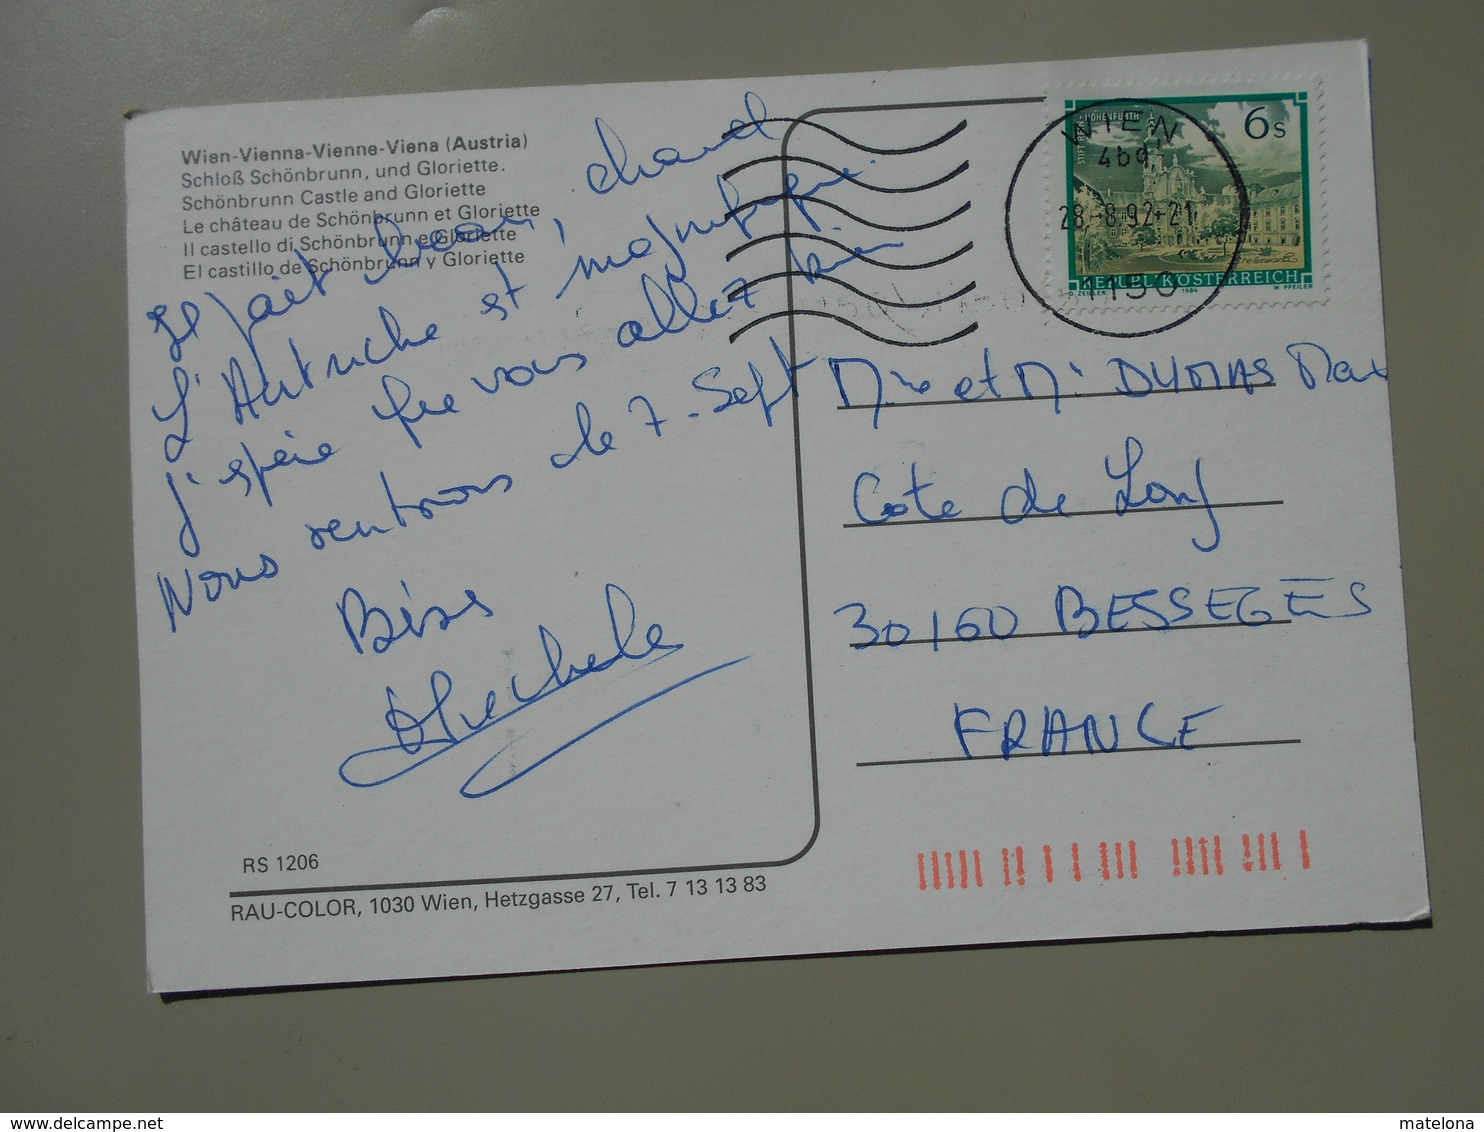 Wien-Vienna-Vienne-Viena (Austria)
Schloß Schönbrunn, und Gloriette.
Schönbrunn Castle and Gloriette
Le château de Schönbrunn et Gloriette
Il castello di Schönbrunn e Gloriette
El castillo de Schönbrunn y Gloriette
Il fait beau, chaud
L'Autriche est magnifique
J'espère que vous allez bien
Nous rentrons le 7 - Sept
Bises
Michele
RS 1206
RAU-COLOR, 1030 Wien, Hetzgasse 27, Tel. 7 13 13 83
STIFT HOHENFURTH
6s
REPUBLIK ÖSTERREICH
O. ZEILER 1984 W. PFEILER
WIEN
4bd
28.-8.92-21
1150
Mme et Mr DUMAS Max
Cote de Long
30160 BESSEGES
FRANCE
matelona